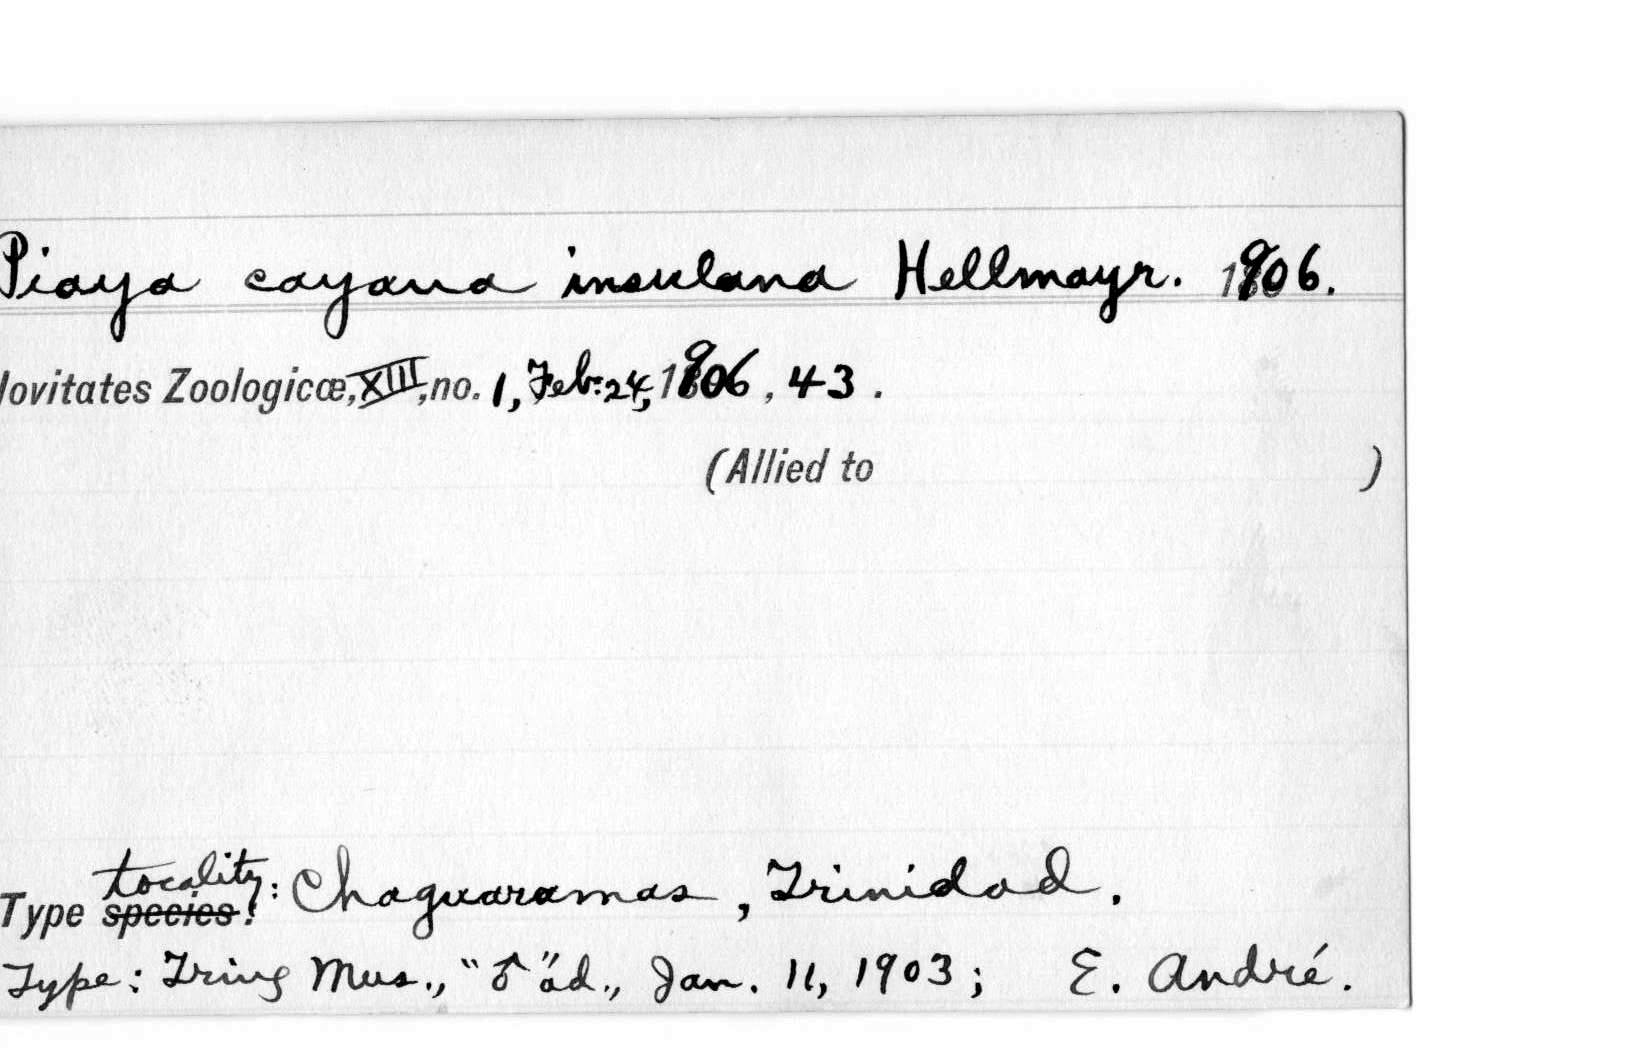 Piaya cayana insulana Hellmayr. 1906.
Novitates Zoologicæ, XIII, no. 1, Feb. 24, 1906, 43.
(Allied to )
locality:
Type species: Chaguaramas, Trinidad.
Type: Tring Mus., "♂" ad., Jan. 11, 1903; E. André.